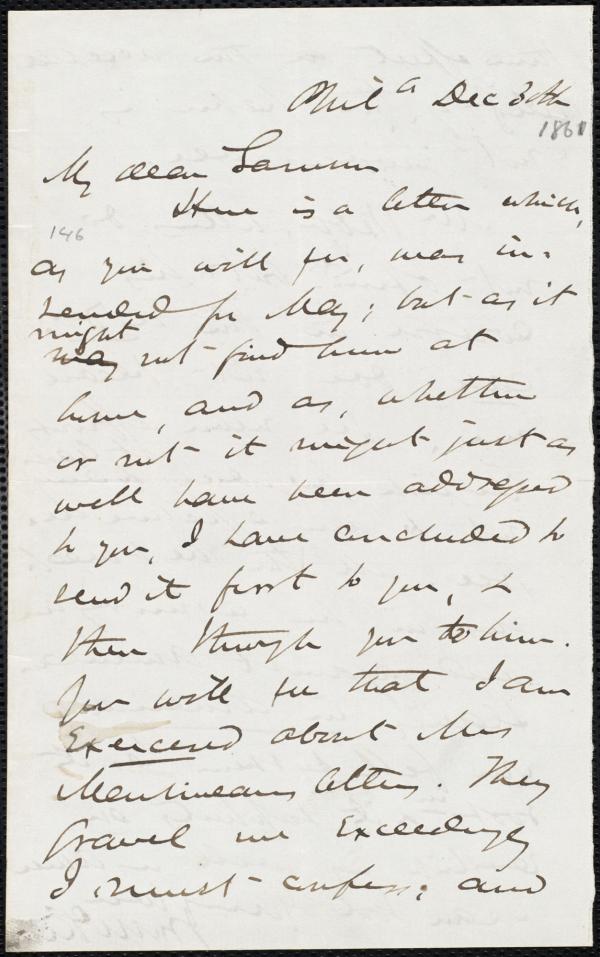 Phila Dec 30th
1861
My dear Garrison
Here is a letter which,
146
as you will see, was in-
tended for May; but as it
might
may not find him at
home, and as, whether
or not it might just as
well have been addressed
to you, I have concluded to
send it first to you, &
then through you to him.
You will see that I am
exercised about Mrs
letters. They
gravel me exceedingly
I must confess; and